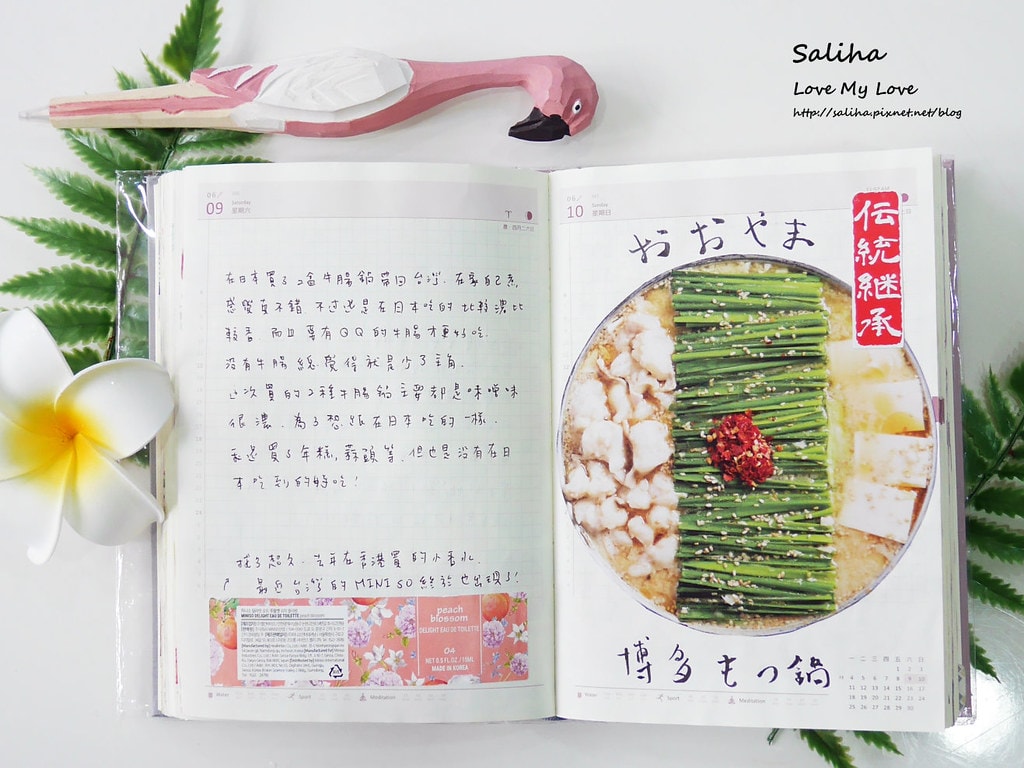 Saliha
Love My Love
http://saliha.pixnet.net/blog
06/
09
Saturday
星期六
下
在日本買了2盒牛腸鍋帶回台灣.在家自己煮,
感覺真不錯.不過還是在日本吃的比較濃比
較香.而且要有QQ的牛腸才更好吃.
沒有牛腸總覺得就是少了主角.
這次買的2種牛腸鍋主要都是味噌味
很濃.為了想跟在日本吃的一樣.
我還買了年糕,蒜頭等.但也是沒有在日
本吃到的好吃!
找了超久.去年在香港買的小香水.
最近台灣的MINISO終於也出現了!
MINISO DELIGHT EAU DE TOILETTE
peach
blossom
DELIGHT EAU DE TOILETTE
04
NET 0.5 FL.OZ / 15ML
MADE IN KOREA
Water
Sport
Meditation
06/
10
Sunday
星期日
おおやま
伝統継承
博多もつ鍋
一 二 三 四 五 六 日
1 2 3
4 5 6 7 8 9 10
11 12 13 14 15 16 17
18 19 20 21 22 23 24
25 26 27 28 29 30
Water
Sport
Meditation